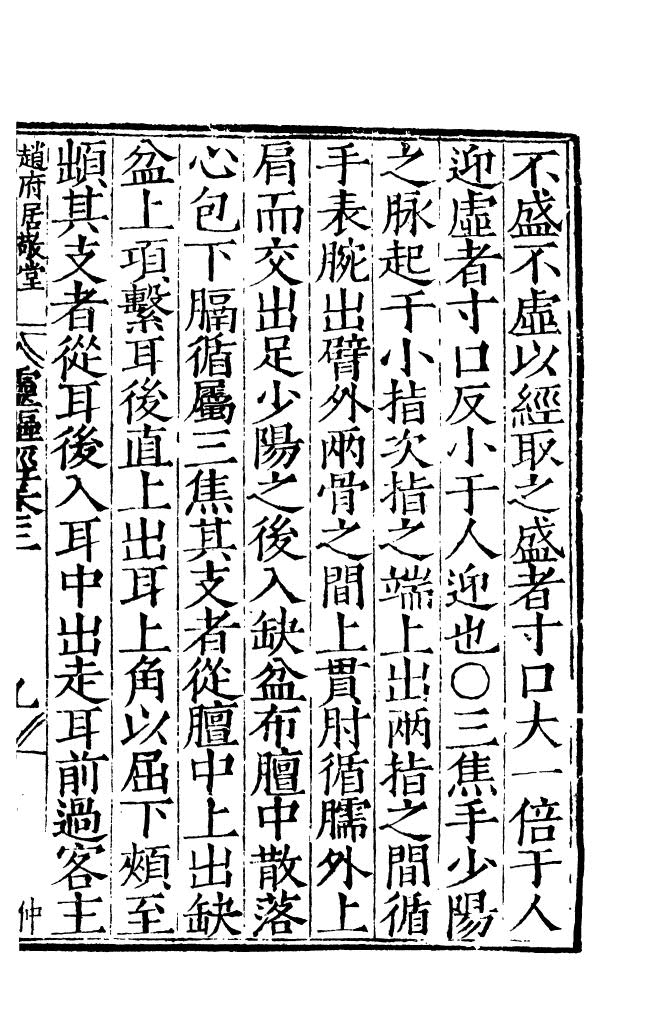 不盛不虛以經取之盛者寸口大一倍于人
迎虛者寸口反小于人迎也○三焦手少陽
之脉起于小指次指之端上出兩指之間循
手表腕出臂外兩骨之間上貫肘循臑外上
肩而交出足少陽之後入缺盆布膻中散落
心包下膈循屬三焦其支者從膻中上出缺
盆上項繫耳後直上出耳上角以屈下頰至
䪼其支者從耳後入耳中出走耳前過客主
趙府居敬堂
靈樞經卷三
仲